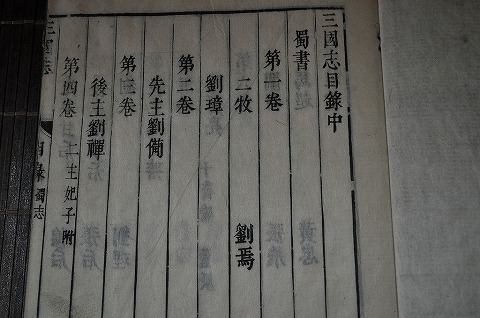 三國志目錄中
蜀書
第一卷
二牧 劉焉
劉璋
第二卷
先主劉備
第三卷
後主劉禪
第四卷 二主妃子附
三國志 目錄 蜀志